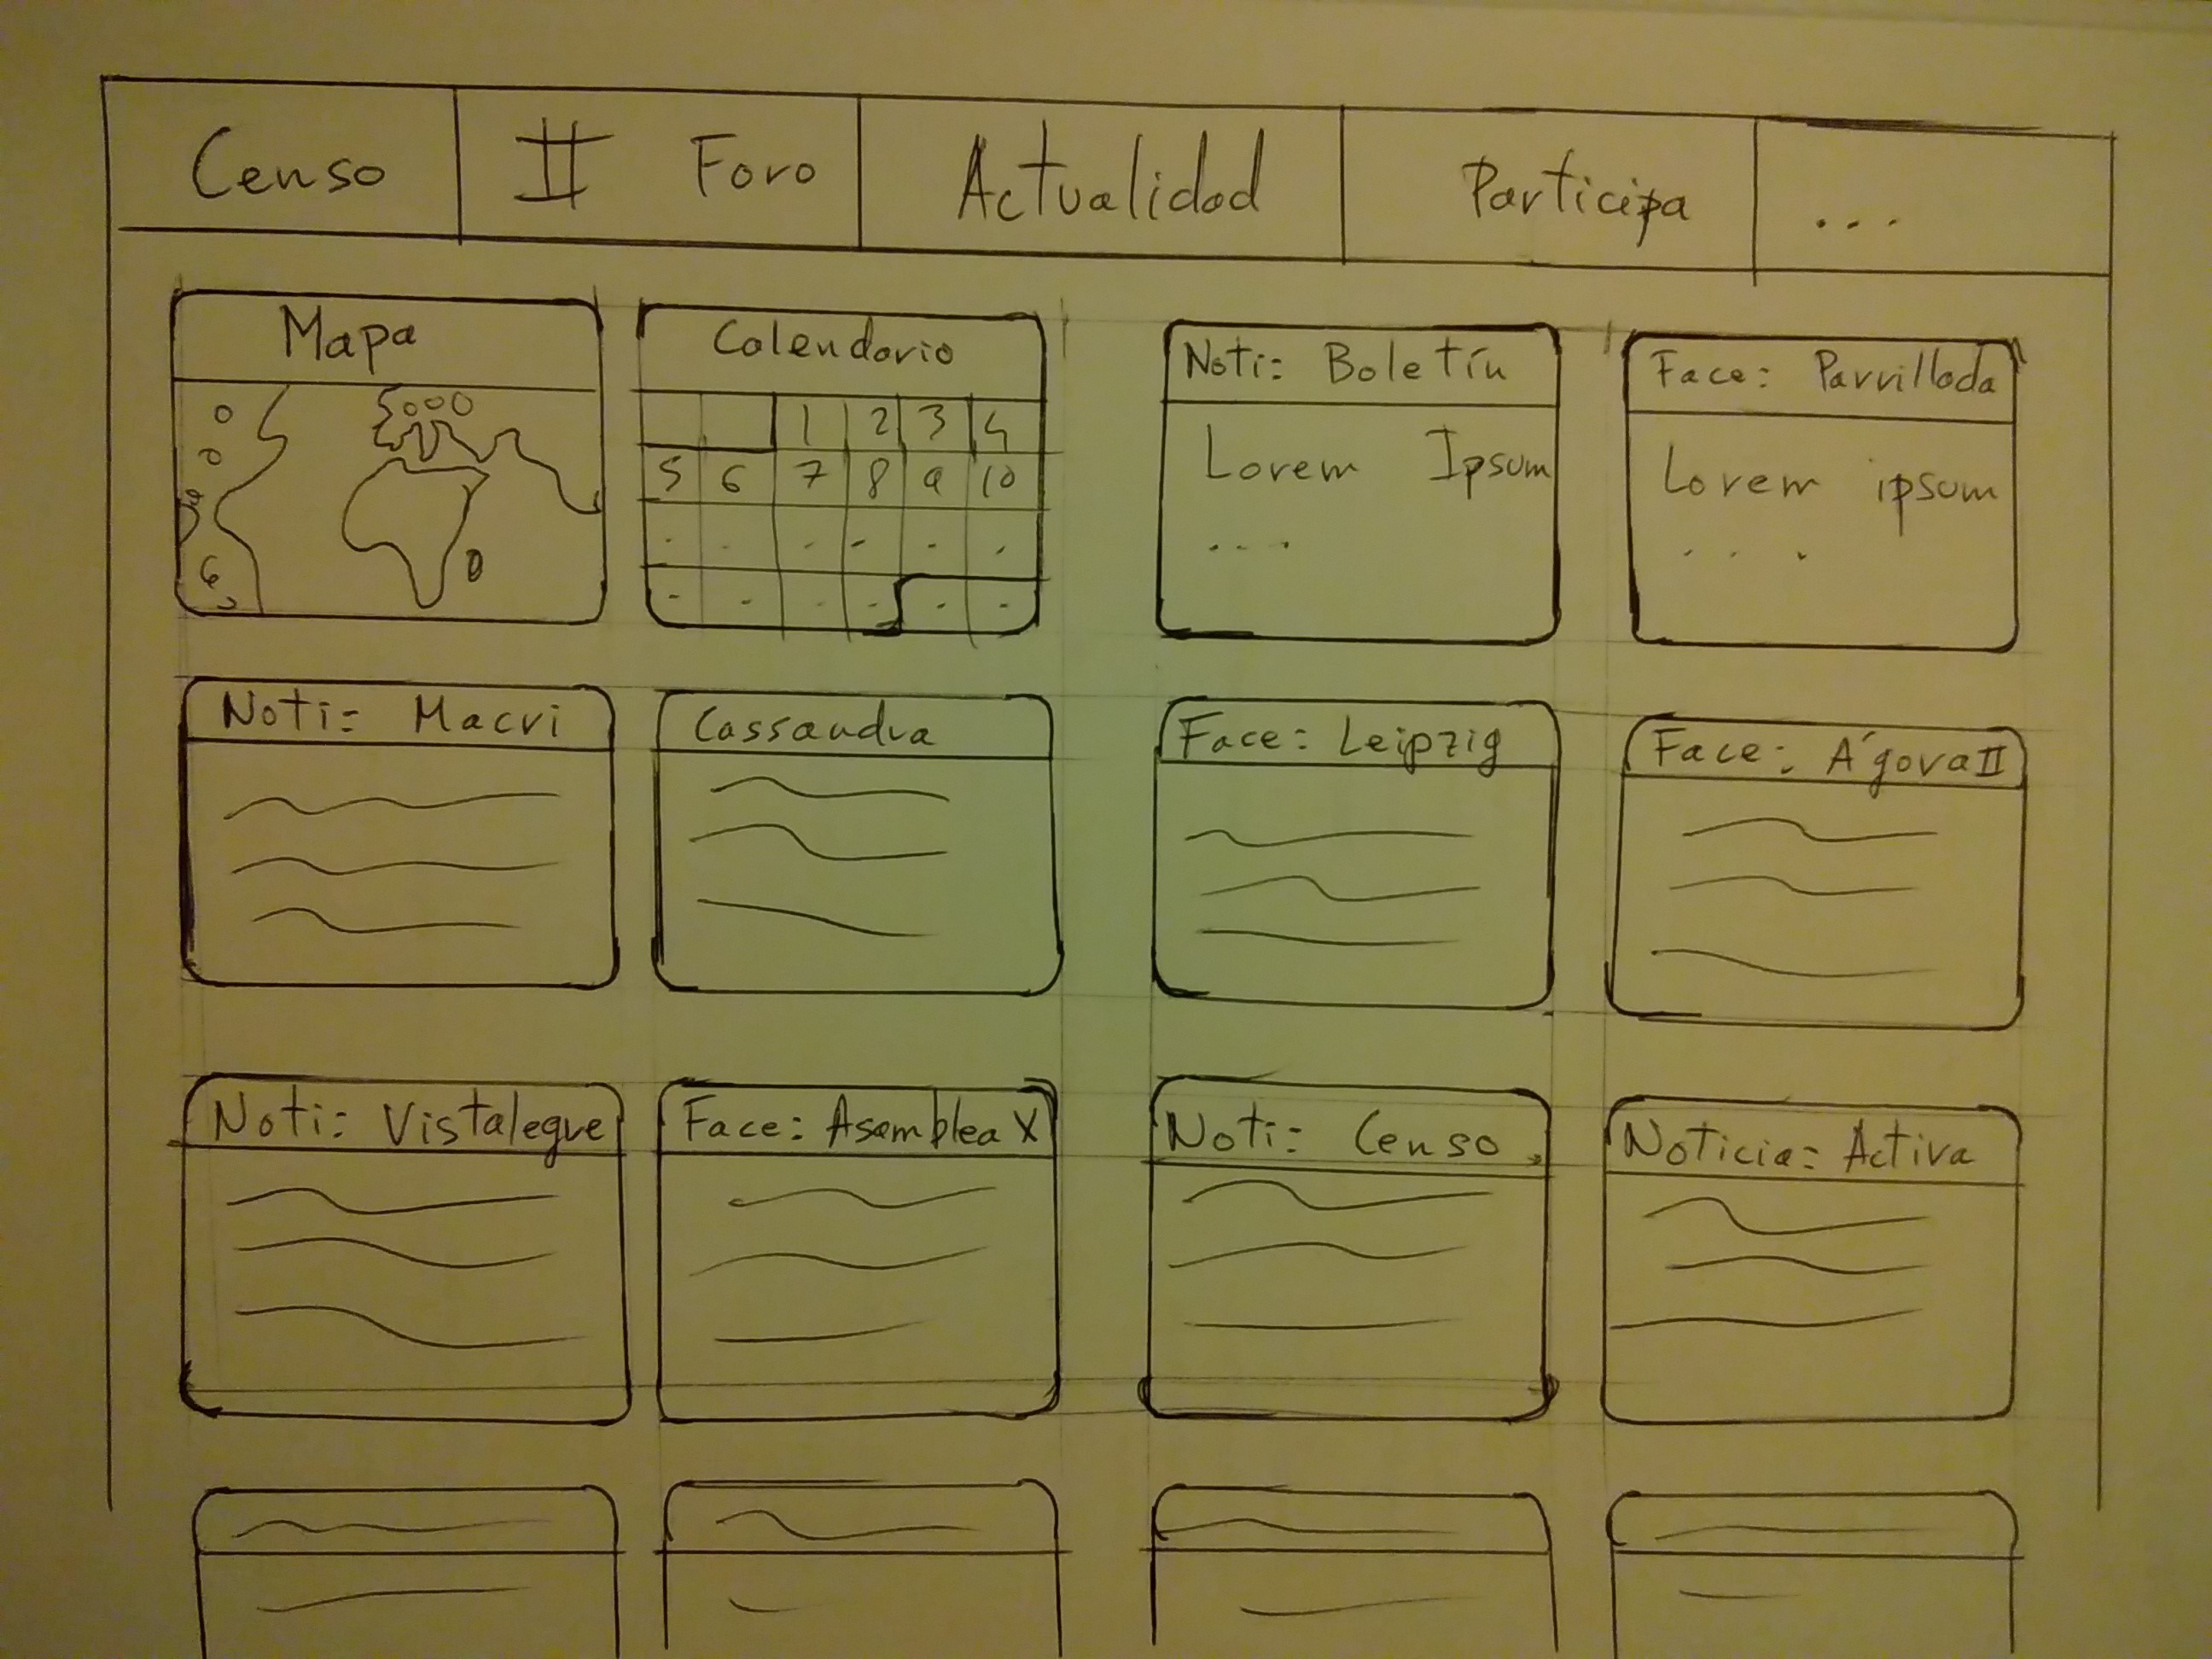 Censo
II Foro
Actualidad
Participa
...
Mapa
Calendario
1 2 3 4
5 6 7 8 9 10
Noti: Boletín
Lorem Ipsum
...
Face: Parrillada
Lorem ipsum
...
Noti: Macri
Cassandra
Face: Leipzig
Face: Ágora II
Noti: Vistalegre
Face: Asamblea X
Noti: Censo
Noticia: Activa